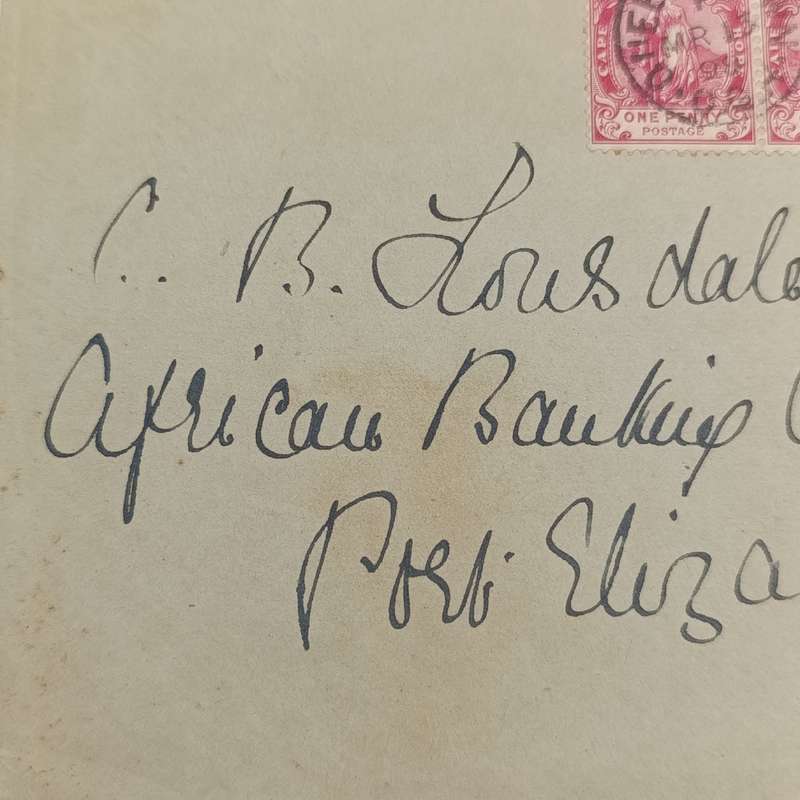 ONE PENNY
POSTAGE
MR
C. B. Lonsdale
African Banking C
Port Eliza